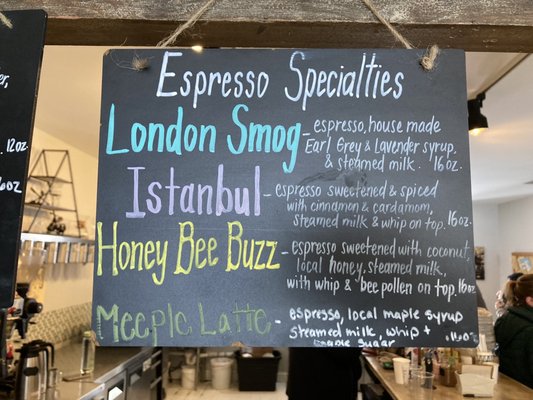 Espresso Specialties
London Smog - espresso, house made
Earl Grey & Lavender syrup,
& steamed milk. 16oz.
Istanbul - espresso sweetened & spiced
with cinnamon & cardamom,
steamed milk & whip on top. 16oz.
Honey Bee Buzz - espresso sweetened with coconut,
local honey, steamed milk,
with whip & bee pollen on top. 16oz
Meeple Latte - espresso, local maple syrup
steamed milk, whip +
maple sugar 16oz
12oz
16oz